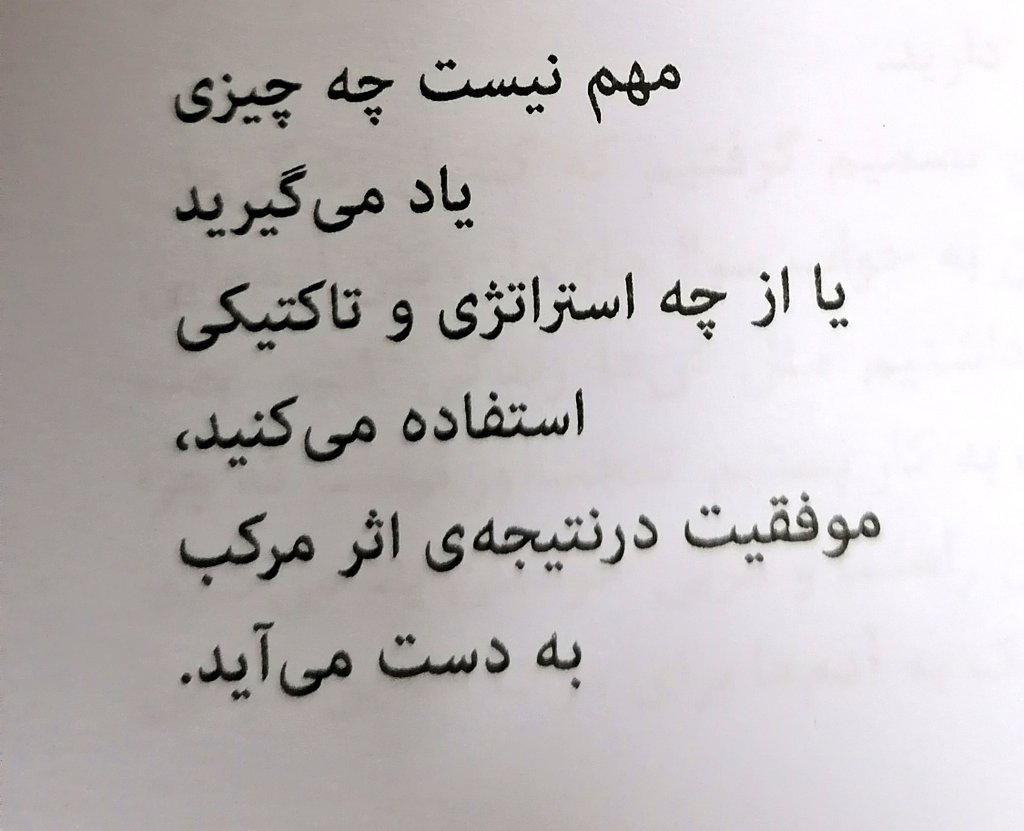 مهم نیست چه چیزی
یاد می‌گیرید
یا از چه استراتژی و تاکتیکی
استفاده می‌کنید،
موفقیت درنتیجه‌ی اثر مرکب
به دست می‌آید.